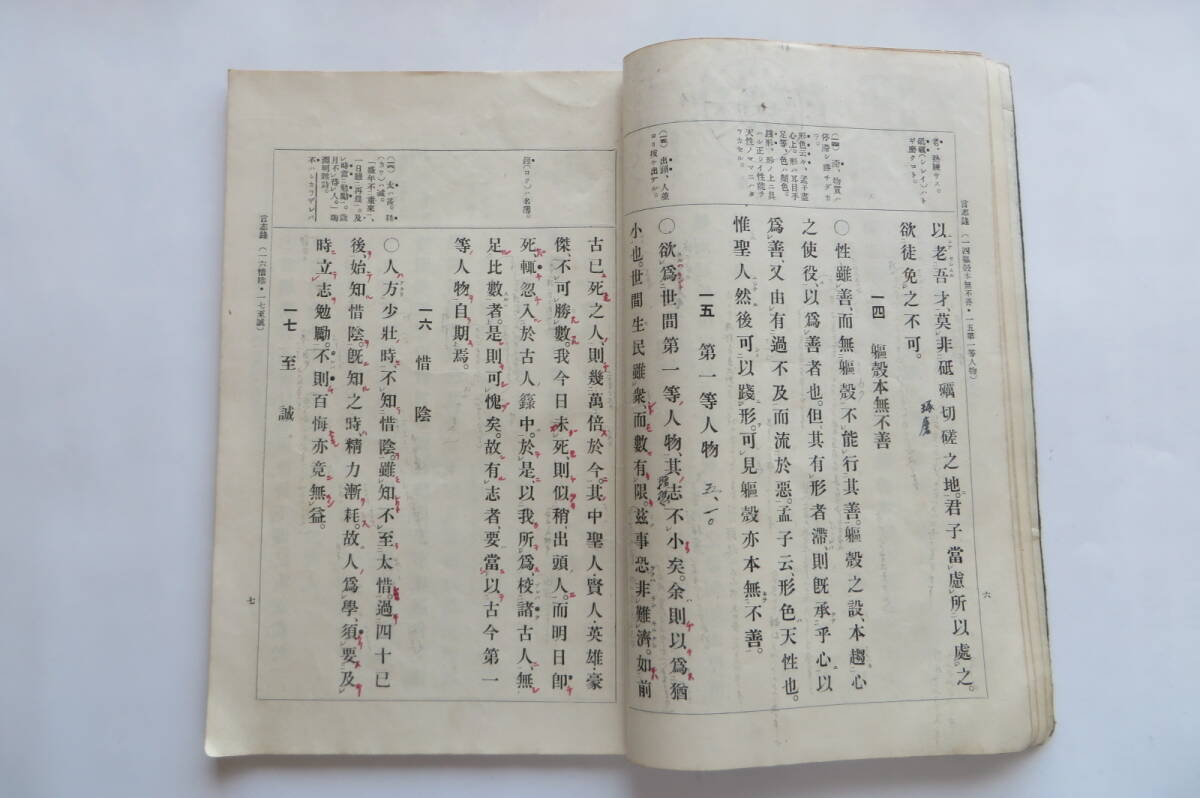 言志錄(一四軀殼本無不善・一五第一等人物)
以老吾才、莫非砥礪切磋之地。君子當慮所以處之。
琢磨
欲徒免之不可。
一四 軀殼本無不善
〇性雖善、而無軀殼不能行其善。軀殼之設、本趨心
之使役、以爲善者也。但其有形者滯、則既承乎心以
爲善、又由有過不及而流於惡。孟子云、形色天性也。
惟聖人然後可以踐形。可見軀殼亦本無不善。
一五 第一等人物 五、一。
〇欲爲世間第一等人物、其志不小矣。余則以爲猶
小也。世間生民雖衆、而數有限。茲事恐非難濟。如前
六
古已死之人、則幾萬倍於今。其中聖人・賢人・英雄・豪
傑、不可勝數。我今日未死則似稍出頭人。而明日卽
死、輒忽入於古人籙中。於是以我所爲、校諸古人、無
足比數者。是則可愧矣。故有志者、要當以古今第一
等人物自期焉。
一六 惜陰
〇人方少壯時、不知惜陰。雖知不至太惜。過四十已
後、始知惜陰。既知之時、精力漸耗。故人爲學、須要及
時立志勉勵。不則百悔亦竟無益。
一七 至誠
言志錄(一六惜陰・一七至誠)
七